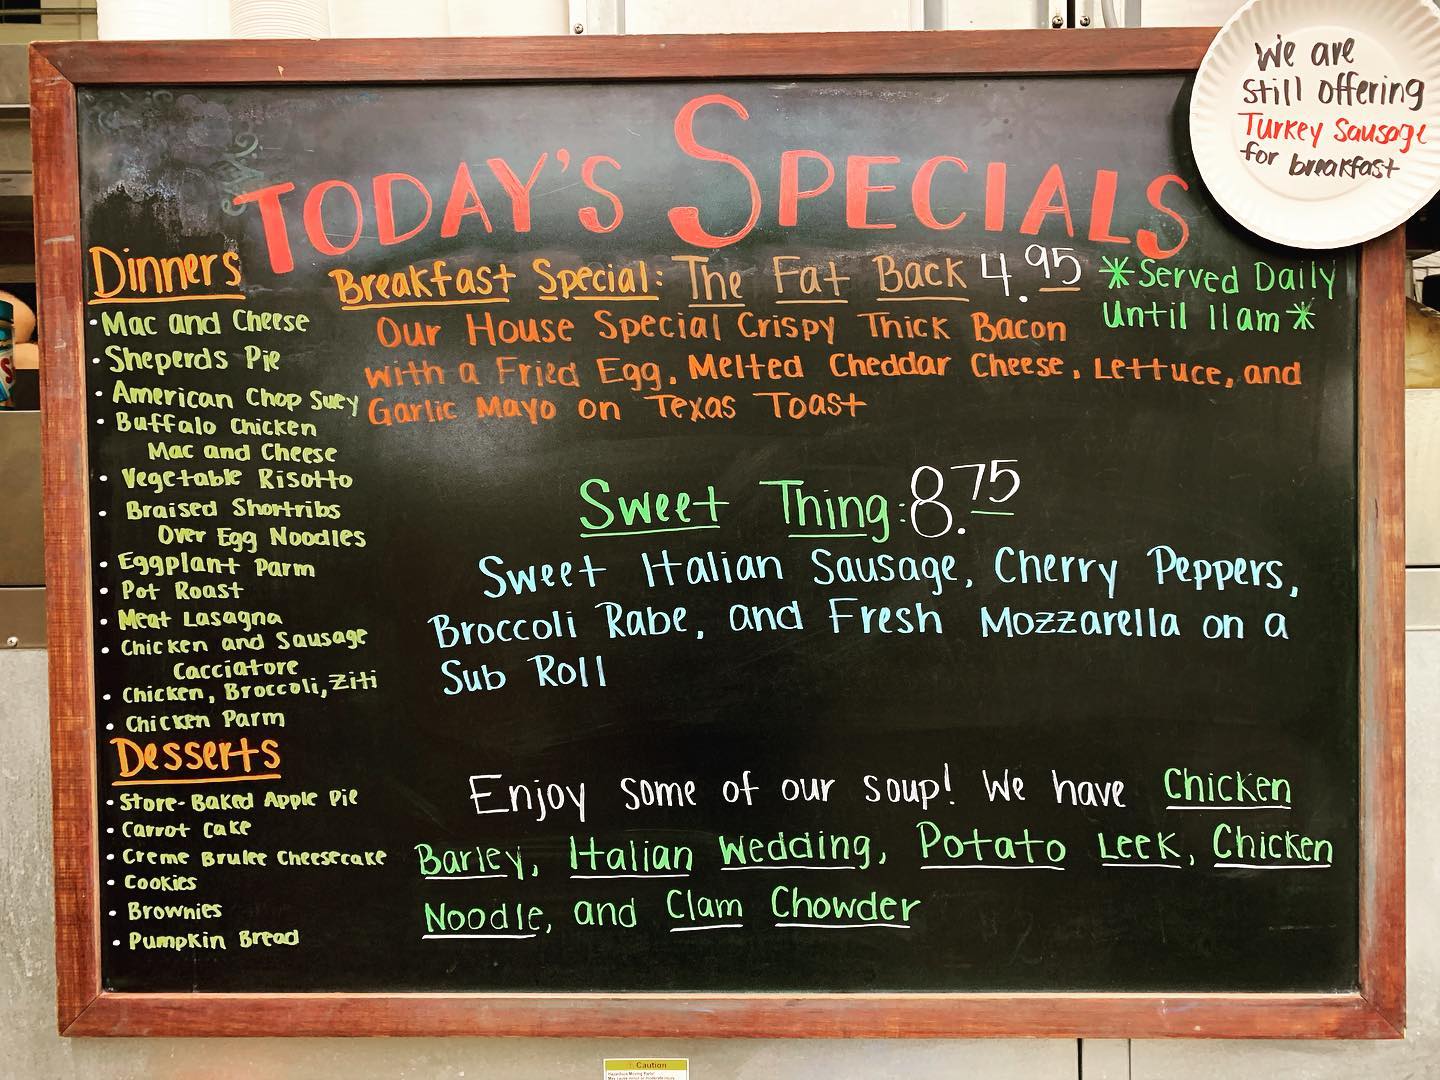 We are
still offering
Turkey Sausage
for breakfast
TODAY'S SPECIALS
Dinners
• Mac and Cheese
• Sheperds Pie
• American Chop Suey
• Buffalo Chicken
Mac and Cheese
• Vegetable Risotto
• Braised Shortribs
Over Egg Noodles
• Eggplant Parm
• Pot Roast
• Meat Lasagna
• Chicken and Sausage
Cacciatore
• Chicken, Broccoli, Ziti
• Chicken Parm
Desserts
• Store-Baked Apple Pie
• Carrot Cake
• Creme Brulee Cheesecake
• Cookies
• Brownies
• Pumpkin Bread
Breakfast Special: The Fat Back 4.95
*Served Daily
Until 11am*
Our House Special Crispy Thick Bacon
with a Fried Egg, Melted Cheddar Cheese, Lettuce, and
Garlic Mayo on Texas Toast
Sweet Thing: 8.75
Sweet Italian Sausage, Cherry Peppers,
Broccoli Rabe, and Fresh Mozzarella on a
Sub Roll
Enjoy some of our soup! We have Chicken
Barley, Italian Wedding, Potato Leek, Chicken
Noodle, and Clam Chowder
Caution